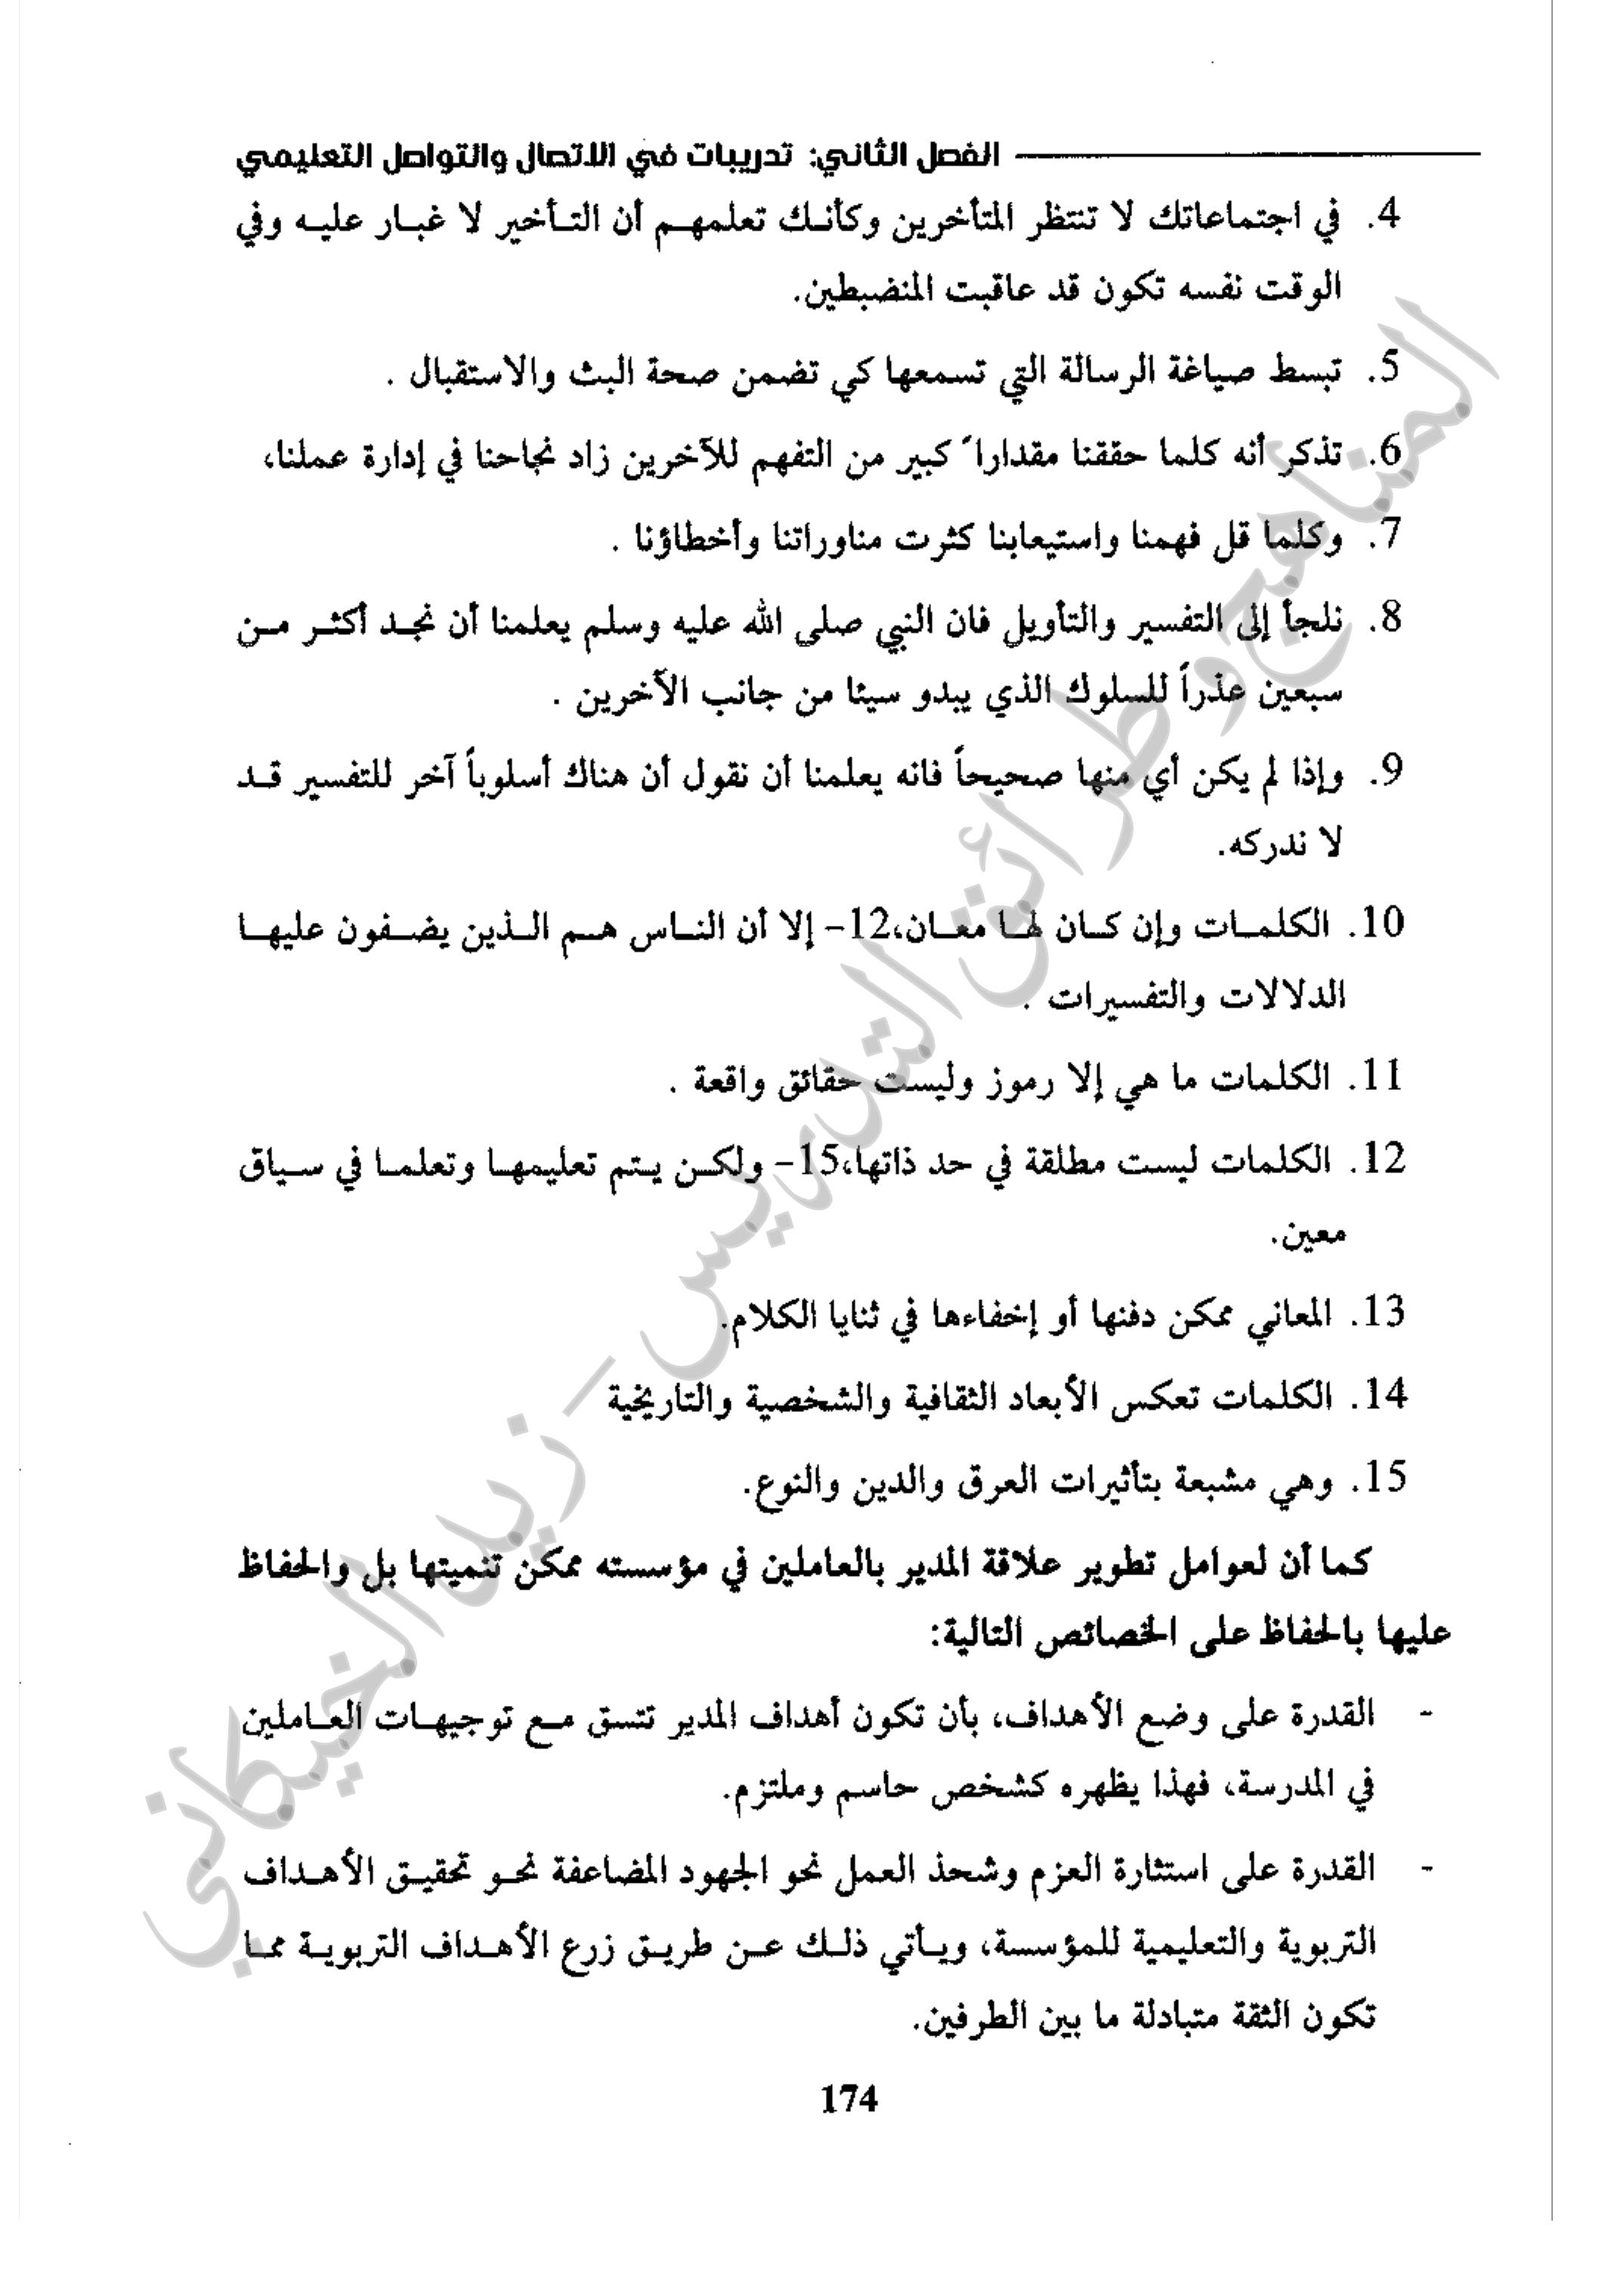 الفصل الثاني: تدريبات في الاتصال والتواصل التعليمي
4. في اجتماعاتك لا تنتظر المتأخرين وكأنك تعلمهم أن التأخير لا غبار عليه وفي
الوقت نفسه تكون قد عاقبت المنضبطين.
5. تبسط صياغة الرسالة التي تسمعها كي تضمن صحة البث والاستقبال .
6. تذكر أنه كلما حققنا مقداراً كبير من التفهم للآخرين زاد نجاحنا في إدارة عملنا،
7. وكلما قل فهمنا واستيعابنا كثرت مناوراتنا وأخطاؤنا .
8. نلجأ إلى التفسير والتأويل فان النبي صلى الله عليه وسلم يعلمنا أن نجد أكثر من
سبعين عذراً للسلوك الذي يبدو سيئا من جانب الآخرين .
9. وإذا لم يكن أي منها صحيحاً فانه يعلمنا أن نقول أن هناك أسلوباً آخر للتفسير قد
لا ندركه.
10. الكلمات وإن كان لها معان،12- إلا أن الناس هم الذين يضفون عليها
الدلالات والتفسيرات .
11. الكلمات ما هي إلا رموز وليست حقائق واقعة .
12. الكلمات ليست مطلقة في حد ذاتها،15- ولكن يتم تعليمها وتعلما في سياق
معين.
13. المعاني ممكن دفنها أو إخفاءها في ثنايا الكلام.
14. الكلمات تعكس الأبعاد الثقافية والشخصية والتاريخية
15. وهي مشبعة بتأثيرات العرق والدين والنوع.
كما أن لعوامل تطوير علاقة المدير بالعاملين في مؤسسته ممكن تنميتها بل والحفاظ
عليها بالحفاظ على الخصائص التالية:
- القدرة على وضع الأهداف، بأن تكون أهداف المدير تتسق مع توجيهات العاملين
في المدرسة، فهذا يظهره كشخص حاسم وملتزم.
- القدرة على استثارة العزم وشحذ العمل نحو الجهود المضاعفة نحو تحقيق الأهداف
التربوية والتعليمية للمؤسسة، ويأتي ذلك عن طريق زرع الأهداف التربوية مما
تكون الثقة متبادلة ما بين الطرفين.
174
المناهج وطرائق التدريس – زيد الخيكاني